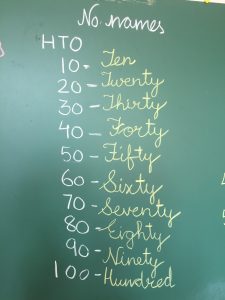 No. names
HTO
10- Ten
20- Twenty
30- Thirty
40- Forty
50- Fifty
60- Sixty
70- Seventy
80- Eighty
90- Ninety
100- Hundred